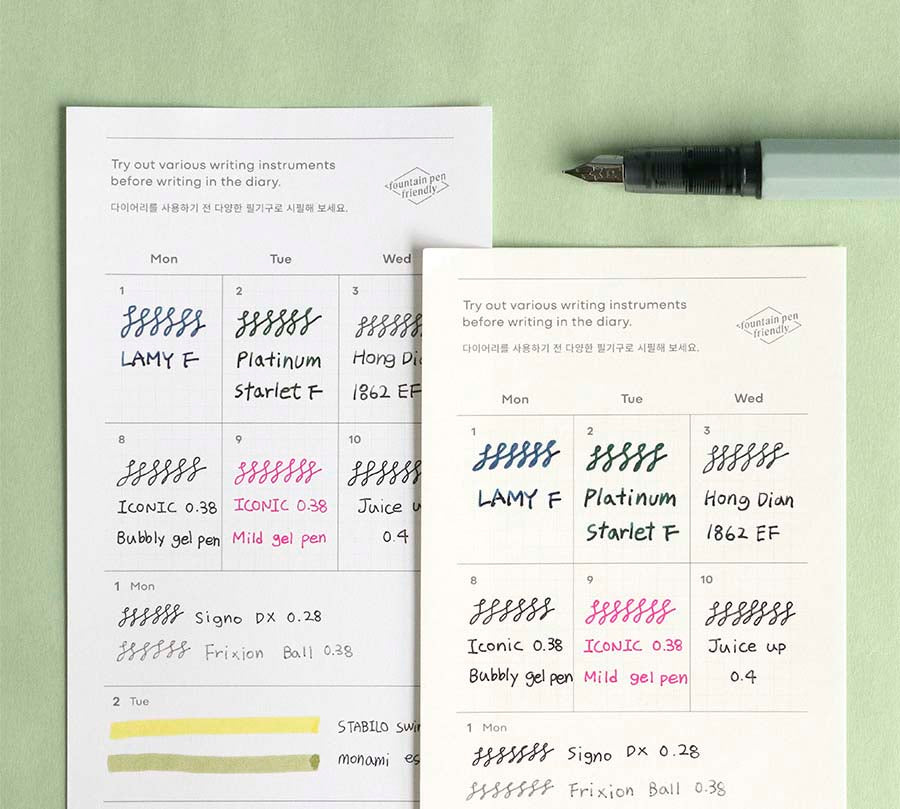 Try out various writing instruments
before writing in the diary.
다이어리를 사용하기 전 다양한 필기구로 시필해 보세요.
fountain pen
friendly
Mon Tue Wed
1 2 3
LAMY F Platinum Hong
Starlet F 1862 EF
8 9 10
ICONIC 0.38 ICONIC 0.38 Juice
Bubbly gel pen Mild gel pen 0.4
1 Mon
Signo DX 0.28
Frixion Ball 0.38
2 Tue
STABILO
monami
Try out various writing instruments
before writing in the diary.
다이어리를 사용하기 전 다양한 필기구로 시필해 보세요.
fountain pen
friendly
Mon Tue Wed
1 2 3
LAMY F Platinum Hong Dian
Starlet F 1862 EF
8 9 10
Iconic 0.38 ICONIC 0.38 Juice up
Bubbly gel pen Mild gel pen 0.4
1 Mon
Signo DX 0.28
Frixion Ball 0.38